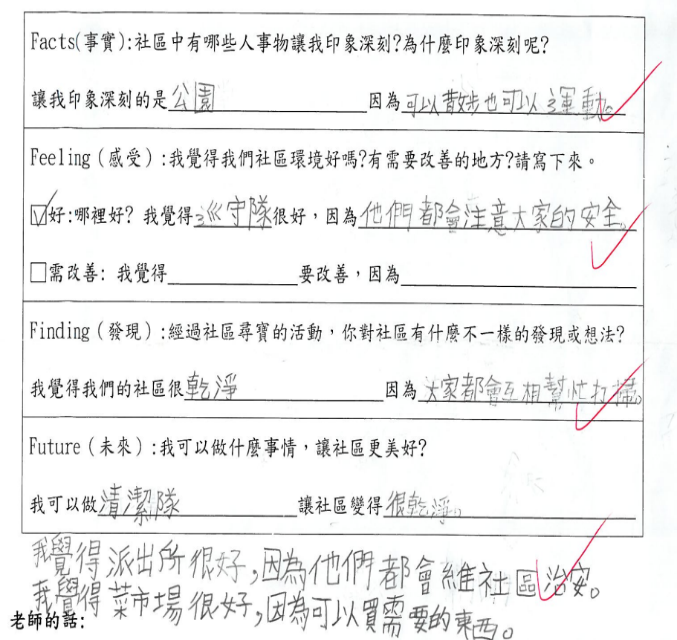 Facts(事實):社區中有哪些人事物讓我印象深刻?為什麼印象深刻呢?
讓我印象深刻的是公園 因為可以散步也可以運動。
Feeling(感受):我覺得我們社區環境好嗎?有需要改善的地方?請寫下來。
☑好:哪裡好? 我覺得巡守隊很好,因為他們都會注意大家的安全。
□需改善: 我覺得 要改善,因為
Finding(發現):經過社區尋寶的活動,你對社區有什麼不一樣的發現或想法?
我覺得我們的社區很乾淨 因為大家都會互相幫忙打掃。
Future(未來):我可以做什麼事情,讓社區更美好?
我可以做清潔隊 讓社區變得很乾淨。
我覺得派出所很好,因為他們都會維社區治安。
我覺得菜市場很好,因為可以買需要的東西。
老師的話: